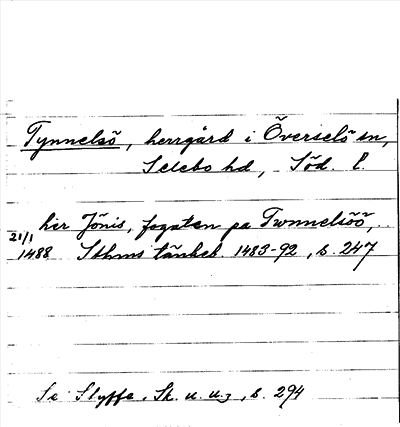 Tynnelsö, herrgård i Överselö sn,
Selebo hd, Söd. l.
her Jönis, fogaten pa Twnnelsöö,
21/1
1488 Sthms tänkeb. 1483-92, s. 247
Se Styffe, Sk. u. u. 3, s. 294